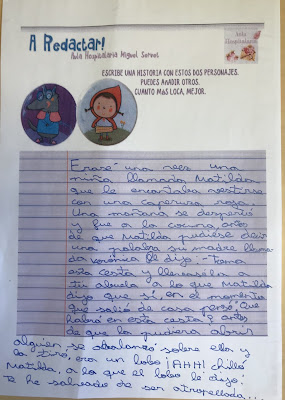 A Redactar!
Aula Hospitalaria Miguel Servet
Aula Hospitalaria
ESCRIBE UNA HISTORIA CON ESTOS DOS PERSONAJES.
PUEDES AÑADIR OTROS.
CUANTO MÁS LOCA, MEJOR.
Erase una vez una
niña llamada Matilda
que le encantaba vestirse
con una caperuza rosa.
Una mañana se despertó
y fue a la cocina, antes
de que Matilda pudiese decir
una palabra su madre llama-
da Verónica le dijo: - Toma
esta cesta y llevasela a
tu abuela a lo que Matilda
dijo que sí, en el momento
que salió de casa pensó: Que
habrá en esta cesta? y antes
de que la pudiera abrir
alguien se abalanzó sobre ella y
la tiró, era un lobo ¡AHH! chilló
Matilda, a lo que el lobo le dijo:
Te he salvado de ser atropellada...